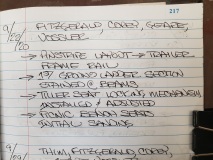 217
9/29/20 FITZGERALD, COREY, GEFAPE,
VOGELER
→ PINSTRIPE LAYOUT → TRAILER
FRAME RAIL
→ 1ST GROUND LADDER SECTION
STAINED @ BEAMS
→ TILLER SEAT LOCKING MECHANISM
INSTALLED & ADJUSTED
→ PICNIC BENCH SEATS
INITIAL SANDING
9/ THIM, FITZGERALD, COREY,